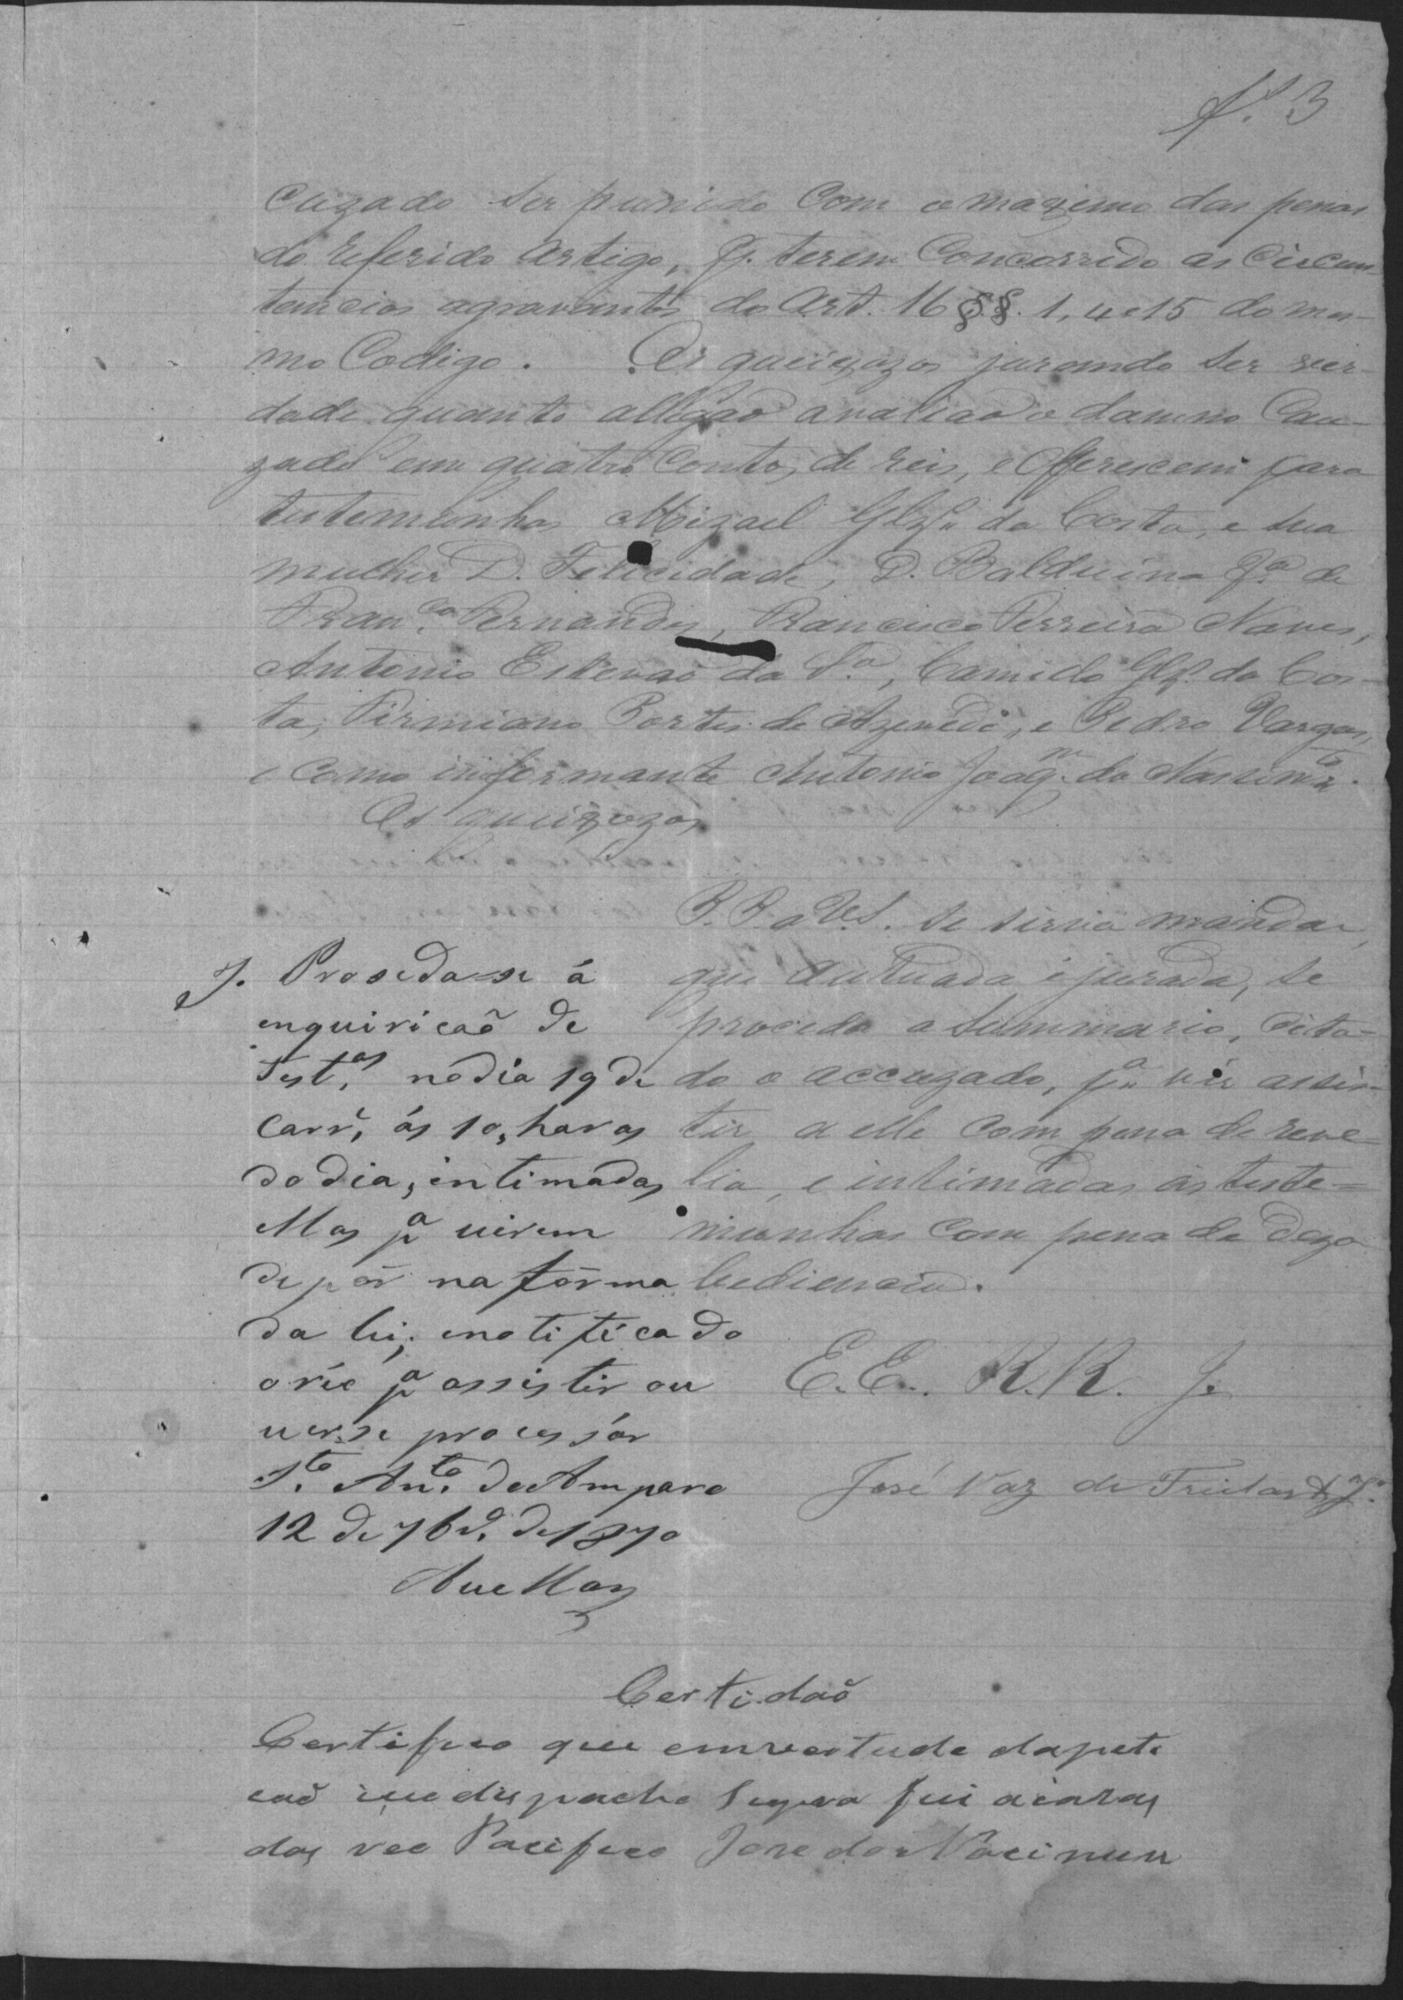 fl. 3
cuzado ser punido com o maximo das penas
do referido artigo, p. terem concorrido as circuns
tancias agravantes do Art. 16 §§. 1, 4 e 15 do mes-
mo Codigo. Os queixozos jurando ser ver-
dade quanto allegaõ avaliaõ o damno cau-
zado em quatro contos de reis, e offerescem para
testemunhas Mizael Glz. da Costa, e sua
mulher D. Felicidade, D. Balduina f.ª de
Fran.co Fernandes, Francisco Ferreira Naves,
Antonio Estevaõ da S.ª, Camilo Glz. da Cos-
ta, Firmiano Portes de Azevedo, e Pedro Vargas,
e como informante Antonio Joaq.m do Nascim.to.
Os queixozos
P. P. a V. S. se sirva mandar,
que autuada e jurada, se
proceda a summario, cita-
do o accuzado, p.ª vir assis-
tir a elle com pena de reve-
lia, e intimadas as teste-
munhas com pena de dezo
bediencia.
E. E. R. R. J.
José Vaz de Freitas
J. Proseda-se á
enquiriçaõ de
test.as no dia 19 do
corr.e, ás 10, horas
do dia, intimadas
ellas p.ª virem
depôr na fórma
da lei; e notificado
o réo p.ª assistir ou
ver-se processár
S.to An.to do Amparo
12 de 7br.o de 1870
Avellar
Certidaõ
Certifico que em vertude da peti
caõ e despacho supra fui a caza
do reo Pacifico Jose do Nacimen